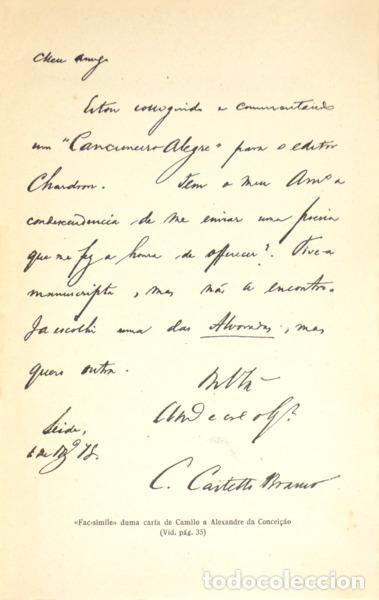 Meu amigo
Estou colligindo e commentando
um "Cancioneiro Alegre" para o editor
Chardron. Tem o meu Amo a
condescendencia de me enviar uma poesia
que me fez a honra de offerecer? Tive-a
manuscripta, mas não a encontro.
Ja escolhi uma das Alvoradas, mas
quero outra.
De V. Exa
Seide,
6 de 78.
C. Castello Branco
«Fac-simile» duma carta de Camilo a Alexandre da Conceição
(Vid. pág. 35)
todocoleccion.net